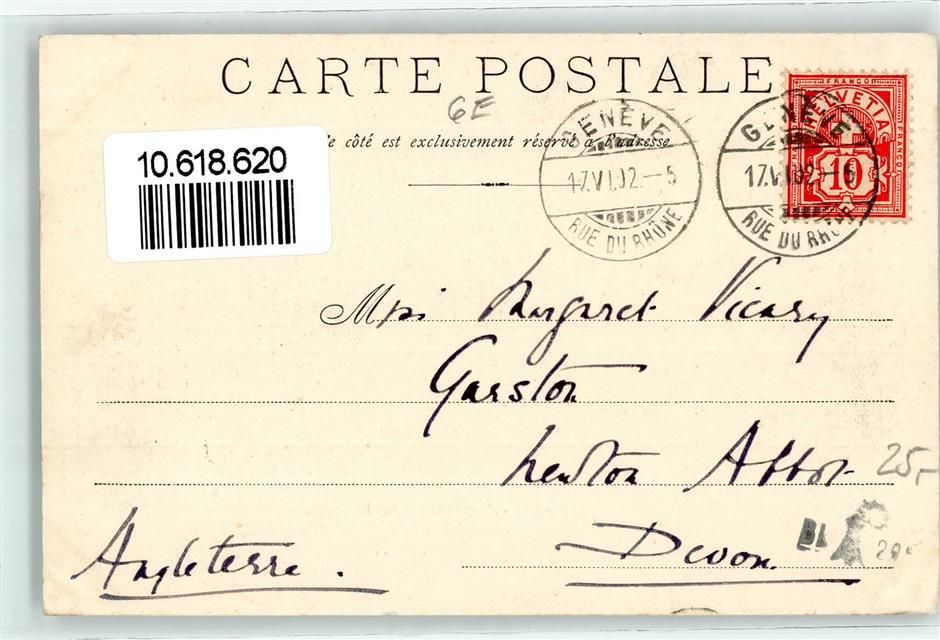 CARTE POSTALE
6E
côté est exclusivement réservé à l'adresse
10.618.620
GENÈVE
17.VI.02.–5
RUE DU RHÔNE
GENÈVE
17.VI.02.–5
RUE DU RHÔNE
FRANCO
HELVETIA
FRANCO
10
Miss Margaret Vicary
Garston
Newton Abbot
25,-
Devon.
BL
Angleterre.